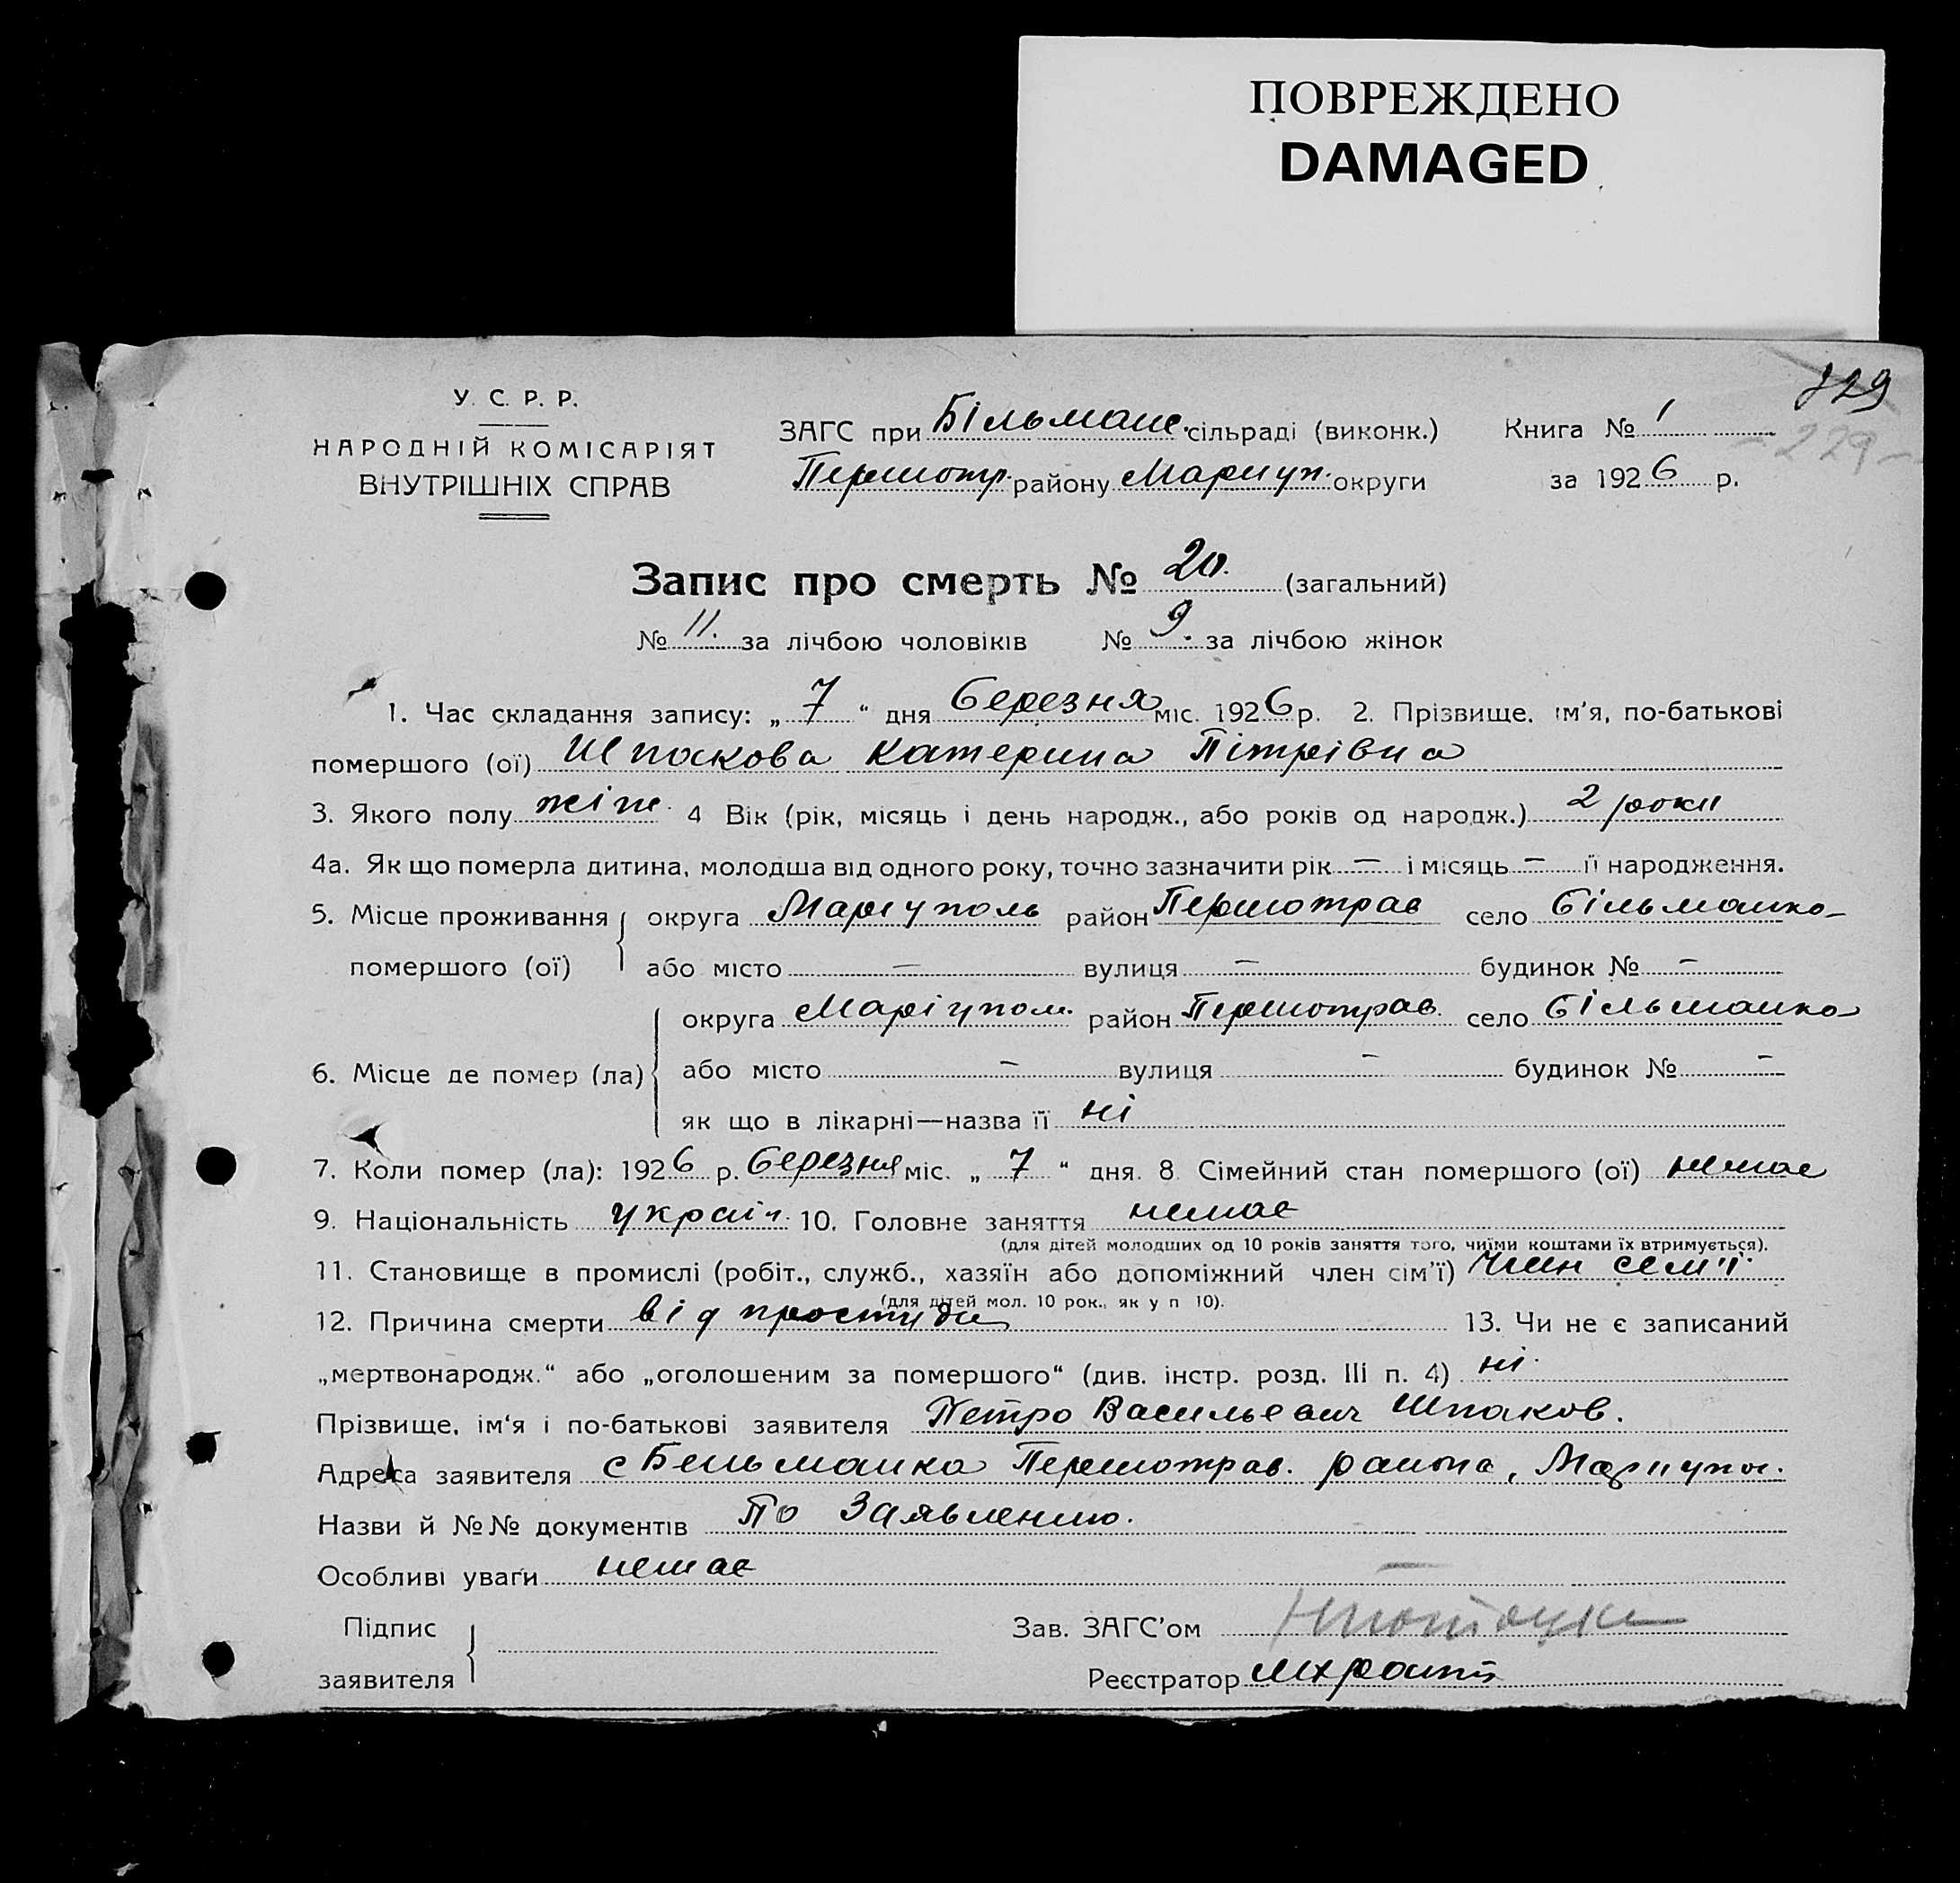 ПОВРЕЖДЕНО
DAMAGED
229
У. С. Р. Р.
НАРОДНІЙ КОМІСАРІЯТ
ВНУТРІШНІХ СПРАВ
ЗАГС при Більманс. сільраді (виконк.) Книга № 1
- 229 -
Першотр. району Мариуп. округи за 1926 р.
Запис про смерть № 20. (загальний)
№ 11. за лічбою чоловіків № 9. за лічбою жінок
1. Час складання запису: „ 7 “ дня березня міс. 1926 р. 2. Прізвище, ім'я, по-батькові
помершого (ої) Шпакова Катерина Пітрівна
3. Якого полу жін. 4 Вік (рік, місяць і день народж., або років од народж.) 2 роки
4а. Як що померла дитина, молодша від одного року, точно зазначити рік — і місяць — її народження.
5. Місце проживання округа Маріуполь район Першотрав село Більманко-
помершого (ої) або місто — вулиця — будинок № -
округа Маріупол. район Першотрав. село Більманка
6. Місце де помер (ла) або місто - вулиця - будинок № -
як що в лікарні—назва її ні
7. Коли помер (ла): 1926 р. березня міс. „ 7 “ дня. 8. Сімейний стан помершого (ої) немає
9. Національність украін. 10. Головне заняття немає
(для дітей молодших од 10 років заняття того, чиїми коштами їх втримується).
11. Становище в промислі (робіт., служб., хазяїн або допоміжний член сім'ї) Член сем'ї.
(для дітей мол. 10 рок., як у п 10).
12. Причина смерти від простуди 13. Чи не є записаний
„мертвонародж.“ або „оголошеним за помершого“ (див. інстр. розд. III п. 4) ні.
Прізвище, ім'я і по-батькові заявителя Петро Васильевич Шпаков.
Адреса заявителя с Бельманка Першотрав. района, Мариупол.
Назви й №№ документів По Заявлению.
Особливі уваґи немає
Підпис
заявителя
Зав. ЗАГС'ом
Реєстратор